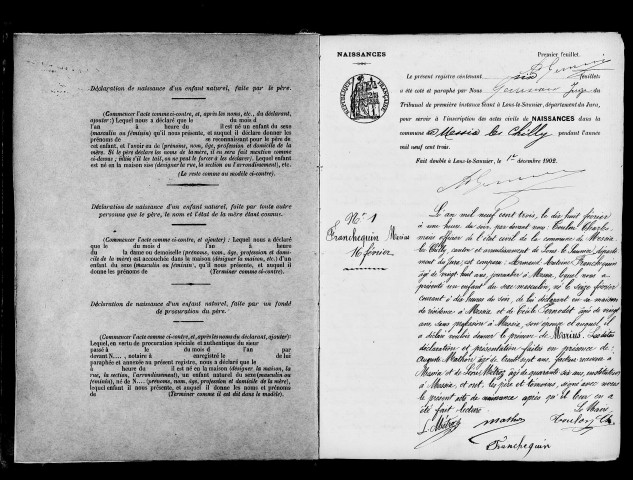 Déclaration de naissance d'un enfant naturel, faite par le père.
(Commencer l'acte comme ci-contre, et, après les noms, etc., du déclarant,
ajouter:) Lequel nous a déclaré que le du mois d
l'an à heure du il est né un enfant du sexe
(masculin ou féminin) qu'il nous présente, et auquel il déclare donner les
prénoms de se reconnaissant pour le père de
cet enfant, et l'avoir eu de (prénoms, nom, âge, profession et domicile de la
mère). Si le père déclare les noms de la mère, il en sera fait mention comme
ci-dessus; mais s'il les tait, on ne peut le forcer à les déclarer). Lequel enfant
est né en la maison sise (désigner la rue, la section ou l'arrondissement), etc.
(Le reste comme au modèle ci-contre).
Déclaration de naissance d'un enfant naturel, faite par toute autre
personne que le père, le nom et l'état de la mère étant connus.
(Commencer l'acte comme ci-contre, et ajouter): Lequel nous a déclaré
que le du mois d l'an à heure du
la dame ou demoiselle (prénoms, nom, âge, profession et domi-
cile de la mère) est accouchée dans la maison (désigner la maison, etc.) d'un
enfant du sexe (masculin ou féminin), qu'il nous présente, et auquel il
donne les prénoms de (Terminer comme ci-contre).
Déclaration de naissance d'un enfant naturel, faite par un fondé
de procuration du père.
(Commencer l'acte comme ci-contre, et après le nom du déclarant, ajouter):
Lequel, en vertu de procuration spéciale et authentique du sieur
passé à le du mois d l'an
devant N..., notaire à enregistré le de lui
paraphée et annexée au présent registre, nous a déclaré que le
à heure du il est né en la maison (désigner la maison, la
rue, la section, l'arrondissement), un enfant naturel, du sexe (masculin ou
féminin), né de N... (prénoms, nom, âge, profession et domicile de la mère),
lequel enfant il nous présente, et auquel il donne les nom et prénoms
de (Terminer comme il est dit dans le modèle).
NAISSANCES Premier feuillet.
RÉPUBLIQUE FRANÇAISE
Le présent registre contenant six feuillets
a été coté et paraphé par Nous Juge du
Tribunal de première instance séant à Lons-le-Saunier, département du Jura,
pour servir à l'inscription des actes civils de NAISSANCES dans la
commune de Messia les Chilly pendant l'année
mil neuf cent trois.
Fait double à Lons-le-Saunier, le 1er décembre 1902.
N° 1
Franchequin Marius
16 février
L'an mil neuf cent trois, le dix huit février
à une heure du soir par devant nous Coulon Charles
maire officier de l'état civil de la commune de Messia
les Chilly canton et arrondissement de Lons le Saunier, départe
ment du Jura, est comparu Armand Franchequin
âgé de vingt huit ans, à Messia, lequel nous a
présenté un enfant du sexe masculin, né le seize février
courant à dix heures du soir, de lui déclarant en sa maison
de résidence à Messia et de Cécile âgée de vingt
ans sans profession à Messia, son épouse et auquel il
a déclaré vouloir donner le prénom de Marius. Lesdites
déclaration et présentation faites en présence de
Auguste Mathon âgé de ans, facteur
à Messia et de Léon Métroz âgé de quarante six ans, instituteur
à Messia, et ont, les père et témoins, signé avec nous
le présent acte de naissance après qu'il leur en a
été fait lecture. Le Maire
L. Métroz Mathon Coulon Ch.
Franchequin